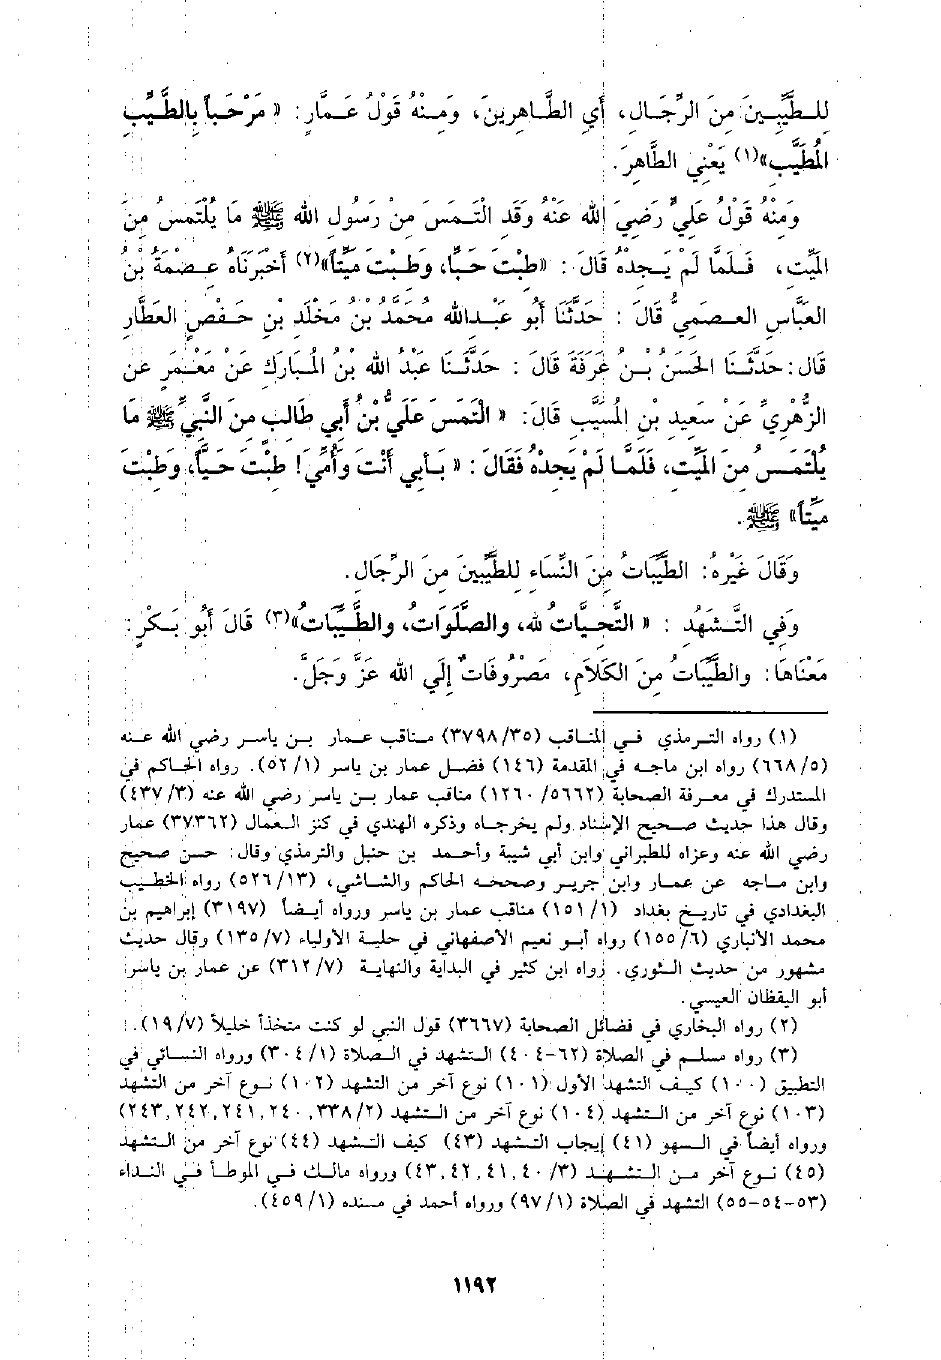 للطَّيِّبِينَ مِنَ الرِّجَالِ، أَيِ الطَّاهِرِينَ، وَمِنْهُ قَوْلُ عَمَّارٍ: « مَرْحَباً بِالطَّيِّبِ
المُطَيَّبِ»(١) يَعْنِي الطَّاهِرَ.
وَمِنْهُ قَوْلُ عَلِيٍّ رَضِيَ الله عَنْهُ وقَدِ الْتَمَسَ مِنْ رَسُولِ الله ﷺ مَا يُلْتَمَسُ مِنَ
المَيِّتِ، فَلَمَّا لَمْ يَجِدْهُ قَالَ : «طِبْتَ حَيًّا، وَطِبْتَ مَيِّتاً»(٢) أَخْبَرَنَاهُ عِصْمَةُ بْنُ
العَبَّاسِ العِصْمِيُّ قَالَ : حَدَّثَنَا أَبُو عَبْدِالله مُحَمَّدُ بْنُ مَخْلَدِ بْنِ حَفْصٍ العَطَّار
قَالَ: حَدَّثَنَا الحَسَنُ بْنُ عَرَفَةَ قَالَ : حَدَّثَنَا عَبْدُ الله بْنُ المُبَارَكِ عَنْ مَعْمَرٍ عَنِ
الزُّهْرِيِّ عَنْ سَعِيدِ بْنِ المُسَيَّبِ قَالَ: « الْتَمَسَ عَلِيُّ بْنُ أَبِي طَالِبٍ مِنَ النَّبِيِّ ﷺ مَا
يُلْتَمَسُ مِنَ المَيِّتِ، فَلَمَّا لَمْ يَجِدْهُ فَقَالَ : « بِأَبِي أَنْتَ وَأُمِّي! طِبْتَ حَيًّا، وَطِبْتَ
مَيِّتاً» ﷺ.
وَقَالَ غَيْرُهُ: الطَّيِّبَاتُ مِنَ النِّسَاءِ للطَّيِّبِينَ مِنَ الرِّجَالِ.
وَفِي التَّشَهُّدِ : « التَّحِيَّاتُ لله، والصَّلَوَاتُ، والطَّيِّبَاتُ»(٣) قَالَ أَبُو بَكْرٍ:
مَعْنَاهَا: والطَّيِّبَاتُ مِنَ الكَلَامِ، مَصْرُوفَاتٌ إِلَى الله عَزَّ وَجَلَّ.
(١) رواه الترمذي في المناقب (٣٧٩٨/٣٥) مناقب عمار بن ياسر رضي الله عنه
(٦٦٨/٥) رواه ابن ماجه في المقدمة (١٤٦) فضل عمار بن ياسر (٥٢/١). رواه الحاكم في
المستدرك في معرفة الصحابة (١٢٦٠/٥٦٦٢) مناقب عمار بن ياسر رضي الله عنه (٤٣٧/٣)
وقال هذا حديث صحيح الإسناد ولم يخرجاه وذكره الهندي في كنز العمال (٣٧٣٦٢) عمار
رضي الله عنه وعزاه للطبراني وابن أبي شيبة وأحمد بن حنبل والترمذي وقال: حسن صحيح
وابن ماجه عن عمار وابن جرير وصححه الحاكم والشاشي، (٥٢٦/١٣) رواه الخطيب
البغدادي في تاريخ بغداد (١٥١/١) مناقب عمار بن ياسر ورواه أيضاً (٣١٩٧) إبراهيم بن
محمد الأنباري (١٥٥/٦) رواه أبو نعيم الأصفهاني في حلية الأولياء (١٣٥/٧) وقال حديث
مشهور من حديث الثوري. رواه ابن كثير في البداية والنهاية (٣١٢/٧) عن عمار بن ياسر
أبو اليقظان العبسي.
(٢) رواه البخاري في فضائل الصحابة (٣٦٦٧) قول النبي لو كنت متخذاً خليلاً (١٩/٧).
(٣) رواه مسلم في الصلاة (٦٢-٤٠٤) التشهد في الصلاة (٣٠٤/١) ورواه النسائي في
التطبيق (١٠٠) كيف التشهد الأول (١٠١) نوع آخر من التشهد (١٠٢) نوع آخر من التشهد
(١٠٣) نوع آخر من التشهد (١٠٤) نوع آخر من التشهد (٣٣٨/٢، ٢٤٠، ٢٤١، ٢٤٢، ٢٤٣)
ورواه أيضاً في السهو (٤١) إيجاب التشهد (٤٣) كيف التشهد (٤٤) نوع آخر من التشهد
(٤٥) نوع آخر من التشهد (٤٠/٣، ٤١، ٤٢، ٤٣) ورواه مالك في الموطأ في النداء
(٥٣-٥٤-٥٥) التشهد في الصلاة (٩٧/١) ورواه أحمد في مسنده (٤٥٩/١).
١١٩٢